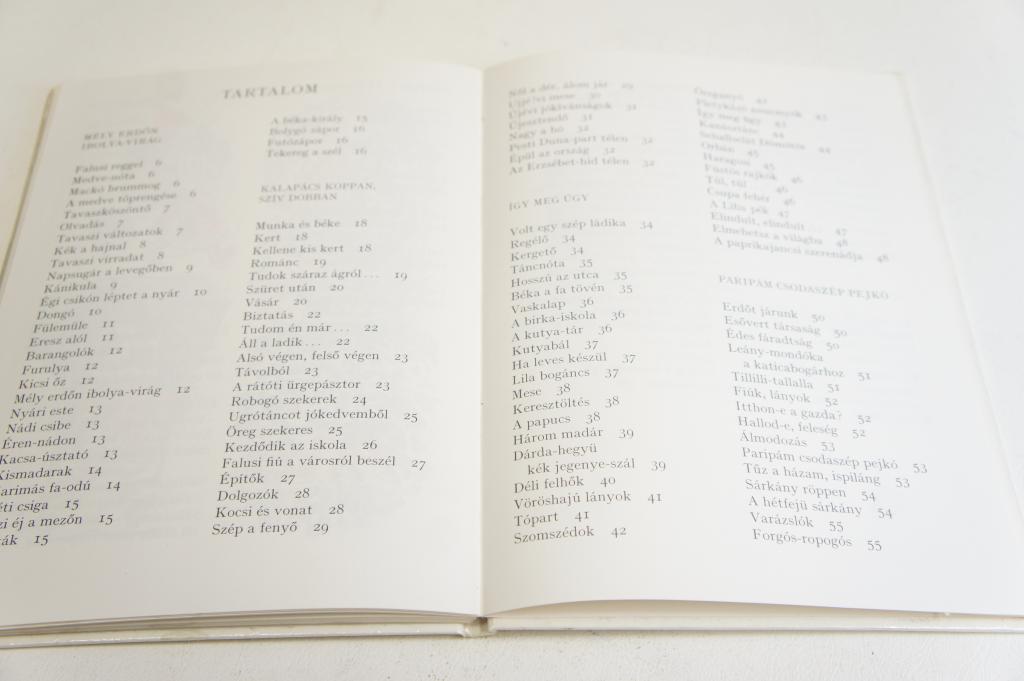 TARTALOM
MÉLY ERDŐN
IBOLYA-VIRÁG
Falusi reggel 6
Medve-nóta 6
Mackó brummog 6
A medve töprengése 6
Tavaszköszöntő 7
Olvadás 7
Tavaszi változatok 7
Kék a hajnal 8
Tavaszi virradat 8
Napsugár a levegőben 9
Kánikula 9
Égi csikón léptet a nyár 10
Dongó 10
Fülemüle 11
Eresz alól 11
Barangolók 12
Furulya 12
Kicsi őz 12
Mély erdőn ibolya-virág 12
Nyári este 13
Nádi csibe 13
Éren-nádon 13
Kacsa-úsztató 13
Kismadarak 14
arimás fa-odú 14
éti csiga 15
zi éj a mezőn 15
ák 15
A béka-király 15
Bolygó zápor 16
Futózápor 16
Tekereg a szél 16
KALAPÁCS KOPPAN,
SZÍV DOBBAN
Munka és béke 18
Kert 18
Kellene kis kert 18
Románc 19
Tudok száraz ágról... 19
Szüret után 20
Vásár 20
Biztatás 22
Tudom én már... 22
Áll a ladik... 22
Alsó végen, felső végen 23
Távolból 23
A rátóti ürgepásztor 23
Robogó szekerek 24
Ugrótáncot jókedvemből 25
Öreg szekeres 25
Kezdődik az iskola 26
Falusi fiú a városról beszél 27
Építők 27
Dolgozók 28
Kocsi és vonat 28
Szép a fenyő 29
Nől a dér, álom jár 29
Újjévi mese 30
Újévi jókívánságok 31
Újesztendő 31
Nagy a hó 32
Pesti Duna-part télen 32
Épül az ország 32
Az Erzsébet-híd télen 32
ÍGY MEG ÚGY
Volt egy szép ládika 34
Regélő 34
Kergető 34
Táncnóta 35
Hosszú az utca 35
Béka a fa tövén 35
Vaskalap 36
A birka-iskola 36
A kutya-tár 36
Kutyabál 37
Ha leves készül 37
Lila bogáncs 37
Mese 38
Keresztöltés 38
A papucs 38
Három madár 39
Dárda-hegyű
kék jegenye-szál 39
Déli felhők 40
Vöröshajú lányok 41
Tópart 41
Szomszédok 42
Öreganyó 42
Pletykázó asszonyok 43
Így meg úgy 43
Kanásztánc 44
44
Orbán 45
Haragosi 45
Füstös rajkók 46
Túl, túl 46
Csupa fehér 46
A Liliputi 47
Elindult, elindult... 47
Elmehetsz a világba 48
A paprikajancsi szerenádja 48
PARIPÁM CSODASZÉP PEJKÓ
Erdőt járunk 50
Esővert társaság 50
Édes fáradtság 50
Leány-mondóka
a katicabogárhoz 51
Tillilli-tallalla 51
Fiúk, lányok 52
Itthon-e a gazda? 52
Hallod-e, feleség 52
Álmodozás 53
Paripám csodaszép pejkó 53
Tűz a házam, ispiláng 53
Sárkány röppen 54
A hétfejű sárkány 54
Varázslók 55
Forgós-ropogós 55